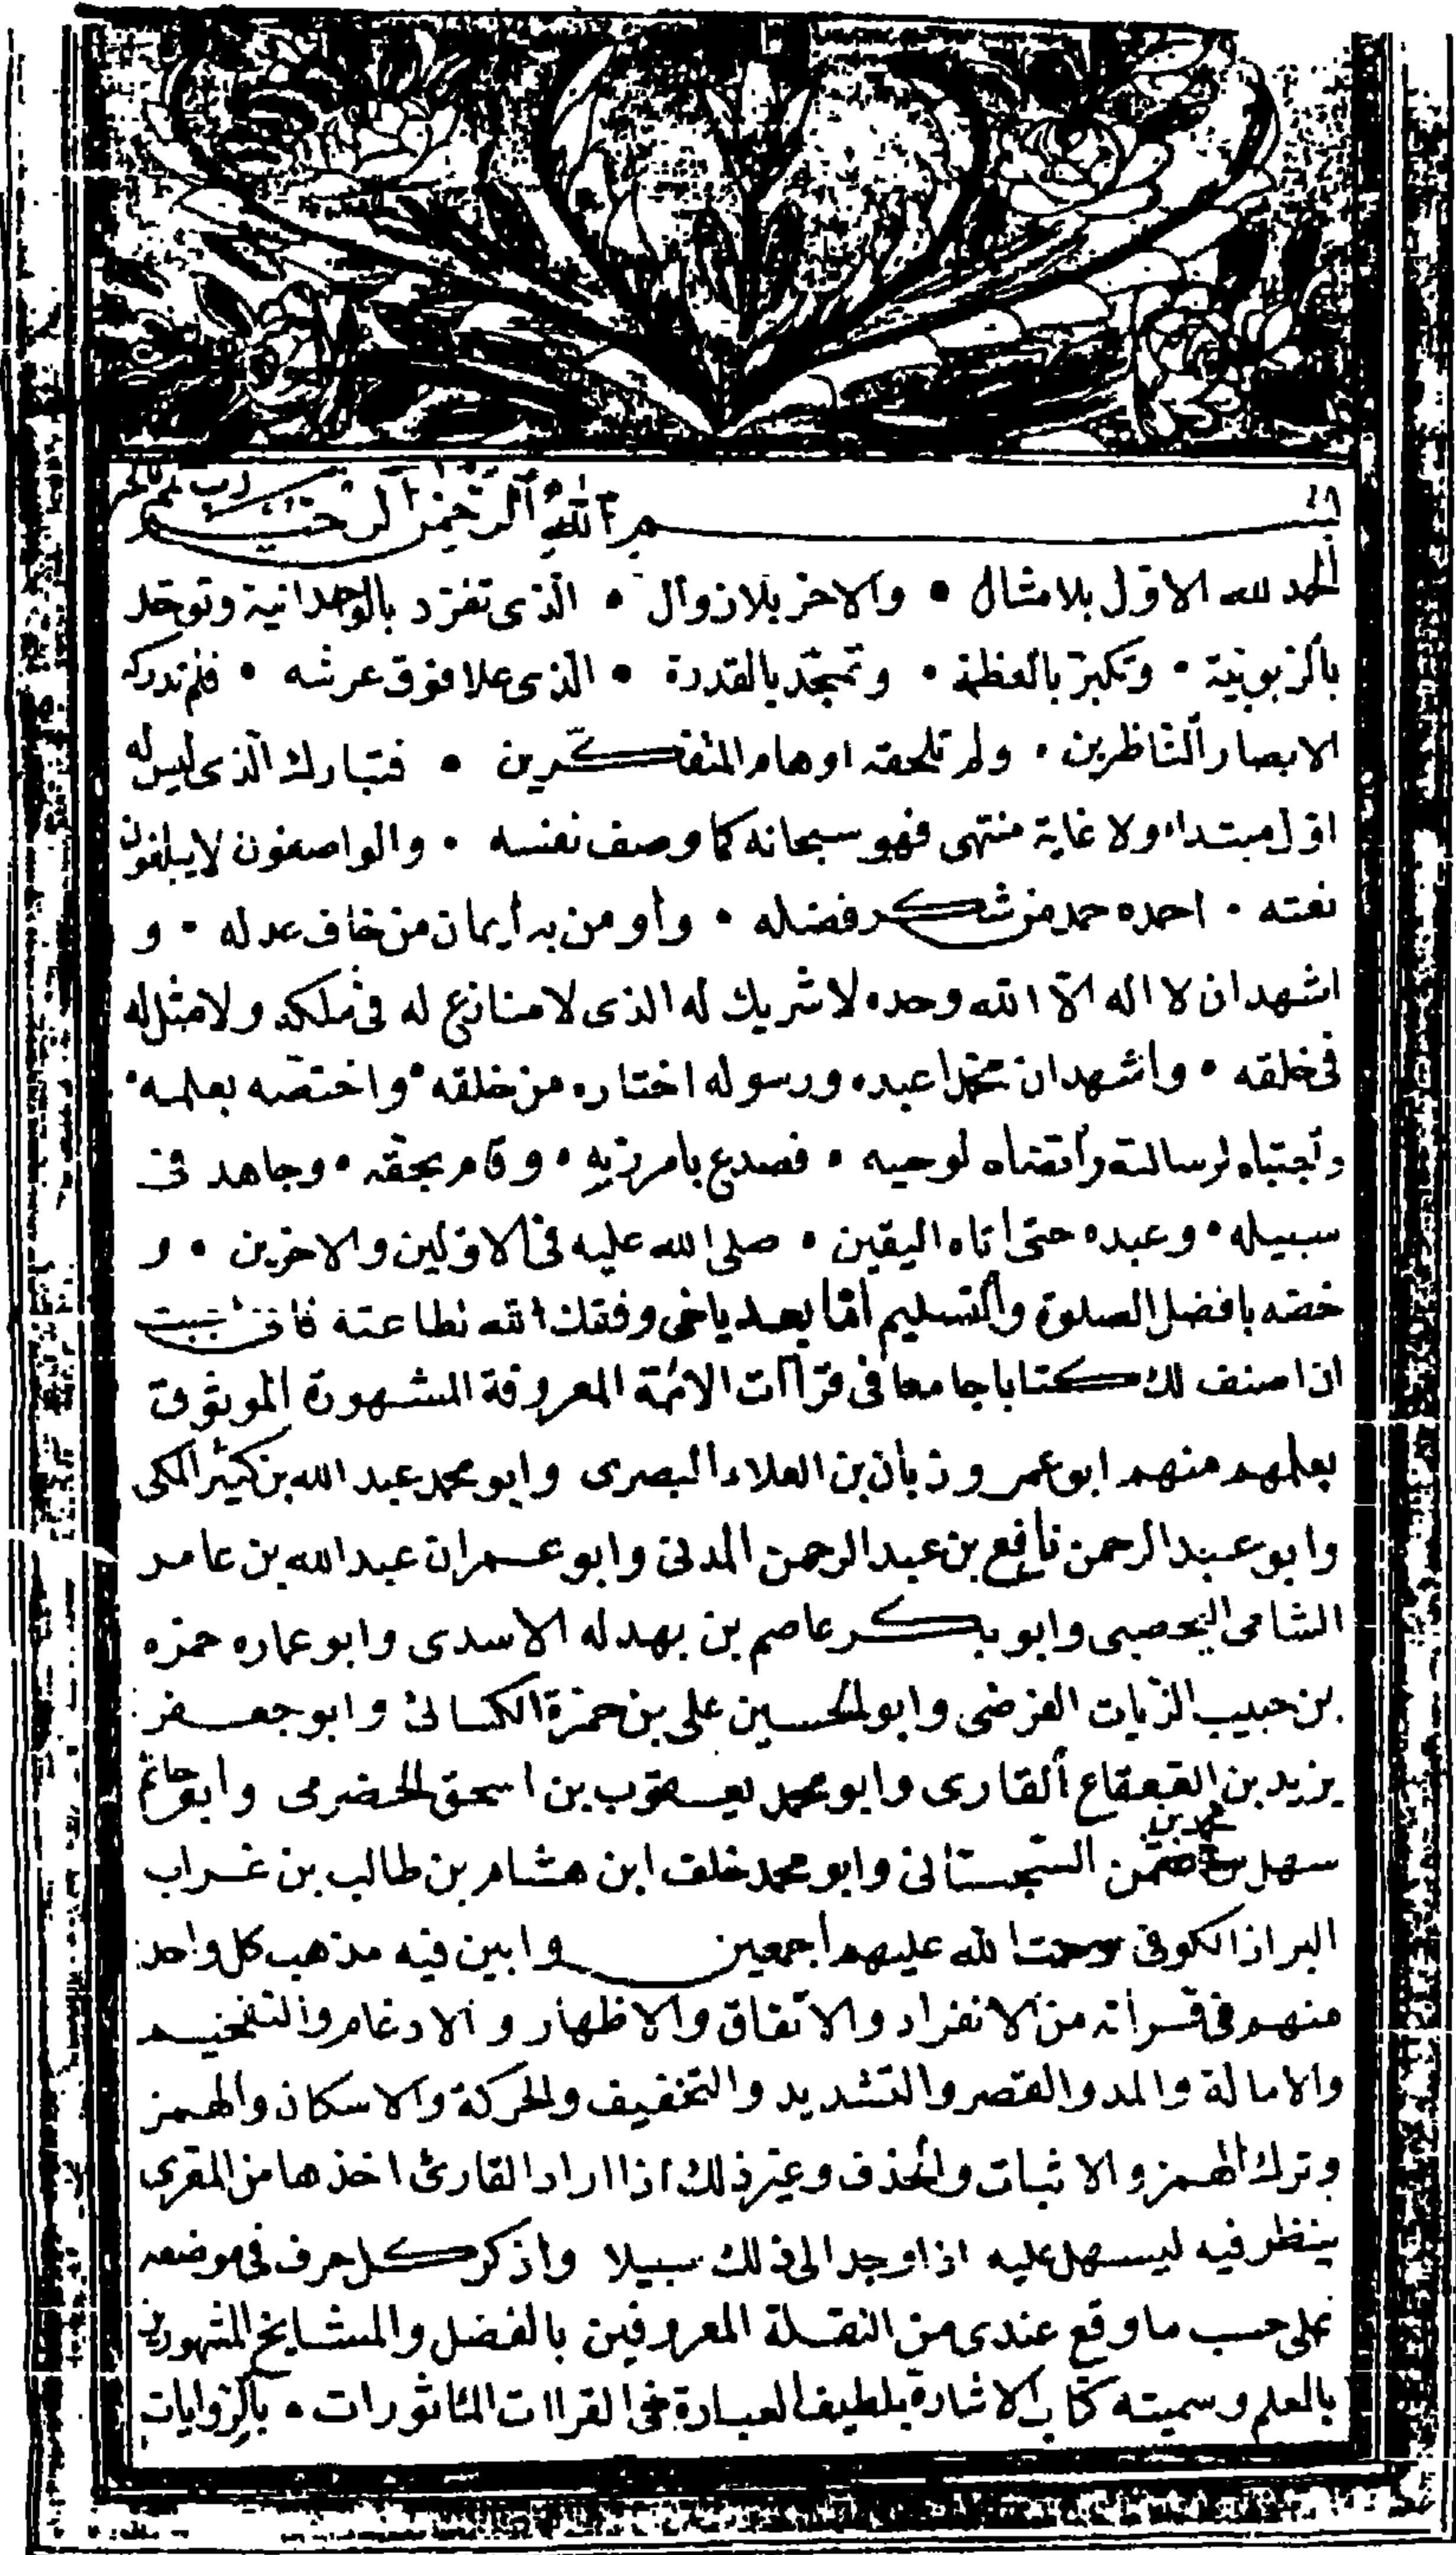 بسم الله الرحمن الرحيم رب تمم بالخير
الحمد لله الاوّل بلا مثال • والاخر بلا زوال • الّذى تفرّد بالوحدانية وتوحّد
بالرّبوبيّة • وتكبّر بالعظمة • وتمجّد بالقدرة • الّذى علا فوق عرشه • فلم تدركه
الابصار النّاظرين • ولم تلحقه اوهام المتفكّرين • فتبارك الّذى ليس له
اوّل مبتداء ولا غاية منتهى فهو سبحانه كما وصف نفسه • والواصفون لا يبلغون
نعته • احمده حمد من شكر فضله • وأومن به أيمان من خاف عدله • و
اشهد ان لا اله الّا الله وحده لا شريك له الذى لا منازع له فى ملكه ولا مثل له
فى خلقه • واشهد ان محمّدا عبده ورسوله اختاره من خلقه • واختصّه بعلمه •
واجتباه لرسالته وأتضاه لوحيه • فصدع بامر ربّه • وقام بحقّه • وجاهد فى
سبيله • وعبده حتى اتاه اليقين • صلى الله عليه فى الاوّلين والاخرين • و
خصّه بافضل الصلوة والتسليم امّا بعد ياخى وفقك الله لطاعته فانى احببت
ان اصنف لك كتابا جامعا فى قراآت الائمّة المعروفة المشهورة الموثوق
بعلمهم منهم ابو عمرو زبان بن العلاء البصرى وابو محمد عبد الله بن كثير المكى
وابو عبد الرحمن نافع بن عبد الرحمن المدنى وابو عمران عبد الله بن عامر
الشامى اليحصبى وابو بكر عاصم بن بهدله الاسدى وابو عماره حمزه
بن حبيب الزّيات الفرضى وابو الحسين على بن حمزة الكسائى وابو جعفر
يزيد بن القعقاع القارى وابو محمد يعقوب بن اسحق الحضرمى وابو حاتم
سهل محمد بن السّجستانى وابو محمد خلف ابن هشام بن طالب بن غراب
البراز الكوفى رحمت الله عليهم اجمعين وابين فيه مذهب كل واحد
منهم فى قراته من الانفراد والاتّفاق والاظهار والادغام والتفخيم
والامالة والمد والقصر والتشديد والتخفيف والحركة والاسكان والهمز
وترك الهمز والاثبات والحذف وغير ذلك اذا اراد القارئ اخذها من المقرى
ينظر فيه ليسهل عليه اذا وجد الى ذلك سبيلا واذكر كل حرف فى موضعه
على حسب ما وقع عندى من النقلة المعروفين بالفضل والمشايخ المشهورين
بالعلم وسميته كتاب الاشارة بلطيف العبارة فى القراات الماثورات • بالرّوايات